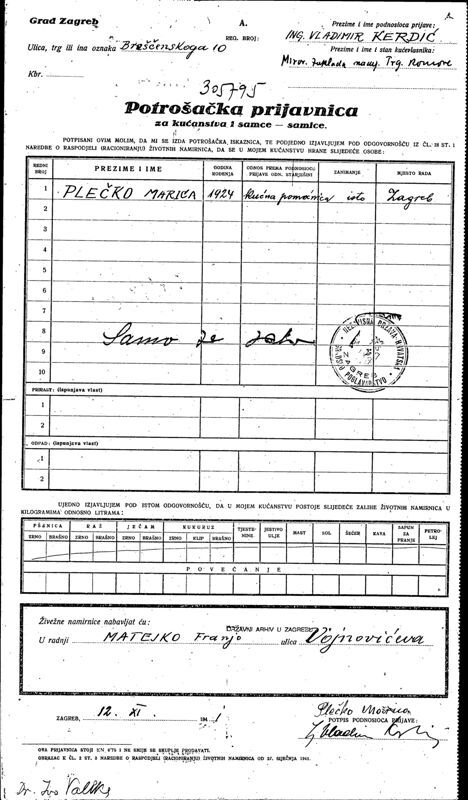 Grad Zagreb
A.
REG. BROJ:
Prezime i ime podnosioca prijave:
ING. VLADIMIR KERDIĆ
Ulica, trg ili ina oznaka Breščenskoga 10
Prezime i ime i stan kućevlasnika:
Trg
Kbr.
305795
Potrošačka prijavnica
za kućanstva i samce — samice.
POTPISANI OVIM MOLIM, DA MI SE IZDA POTROŠAČKA ISKAZNICA, TE PODJEDNO IZJAVLJUJEM POD ODGOVORNOŠĆU IZ ČL. 18 ST. 1
NAREDBE O RASPODJELI (RACIONIRANJU) ŽIVOTNIH NAMIRNICA, DA SE U MOJEM KUĆANSTVU HRANE SLIJEDEĆE OSOBE:
REDNI BROJ
PREZIME I IME
GODINA ROĐENJA
ODNOS PREMA PODNOSIOCU PRIJAVE ODN. STARJEŠINI
ZANIMANJE
MJESTO RADA
1 PLEČKO MARICA 1924 kućna pomoćnica isto Zagreb
2
3
4
5
6
7
8
Samo za
9
10
NEZAVISNA DRŽAVA HRVATSKA
ZAGREB
PRIRAST: (ispunjava vlast)
1
2
OTPAD: (ispunjava vlast)
1
2
UJEDNO IZJAVLJUJEM POD ISTOM ODGOVORNOŠĆU, DA U MOJEM KUĆANSTVU POSTOJE SLIJEDEĆE ZALIHE ŽIVOTNIH NAMIRNICA U
KILOGRAMIMA ODNOSNO LITRAMA:
PŠENICA RAŽ JEČAM KUKURUZ TJESTENINE JESTIVO ULJE MAST SOL ŠEĆER KAVA SAPUN ZA PRANJE PETROLEJ
ZRNO BRAŠNO ZRNO BRAŠNO ZRNO BRAŠNO ZRNO KLIP BRAŠNO
POVEĆANJE
Živežne namirnice nabavljat ću:
DRŽAVNI ARHIV U ZAGREBU
U radnji MATEJKO Franjo ulica Vojnovićeva
ZAGREB, 12. XI. 1941
Plečko Marica
POTPIS PODNOSIOCA PRIJAVE:
OVA PRIJAVNICA STOJI DIN 0'75 I NE SMIJE SE SKUPLJE PRODAVATI.
OBRAZAC K ČL. 2 ST. 3 NAREDBE O RASPODJELI (RACIONIRANJU) ŽIVOTNIH NAMIRNICA OD 27. SIJEČNJA 1941.
Dr. Ivo